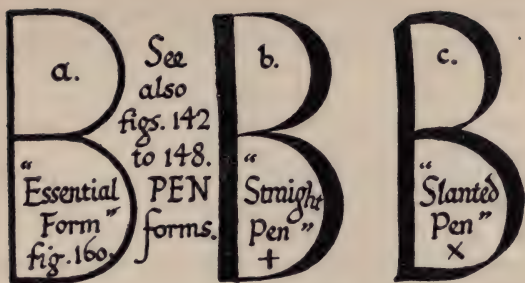 a.
"Essential
Form"
fig. 160.
See
also
figs. 142
to 148.
PEN
forms.
b.
"Straight
Pen"
+
c.
"Slanted
Pen"
×